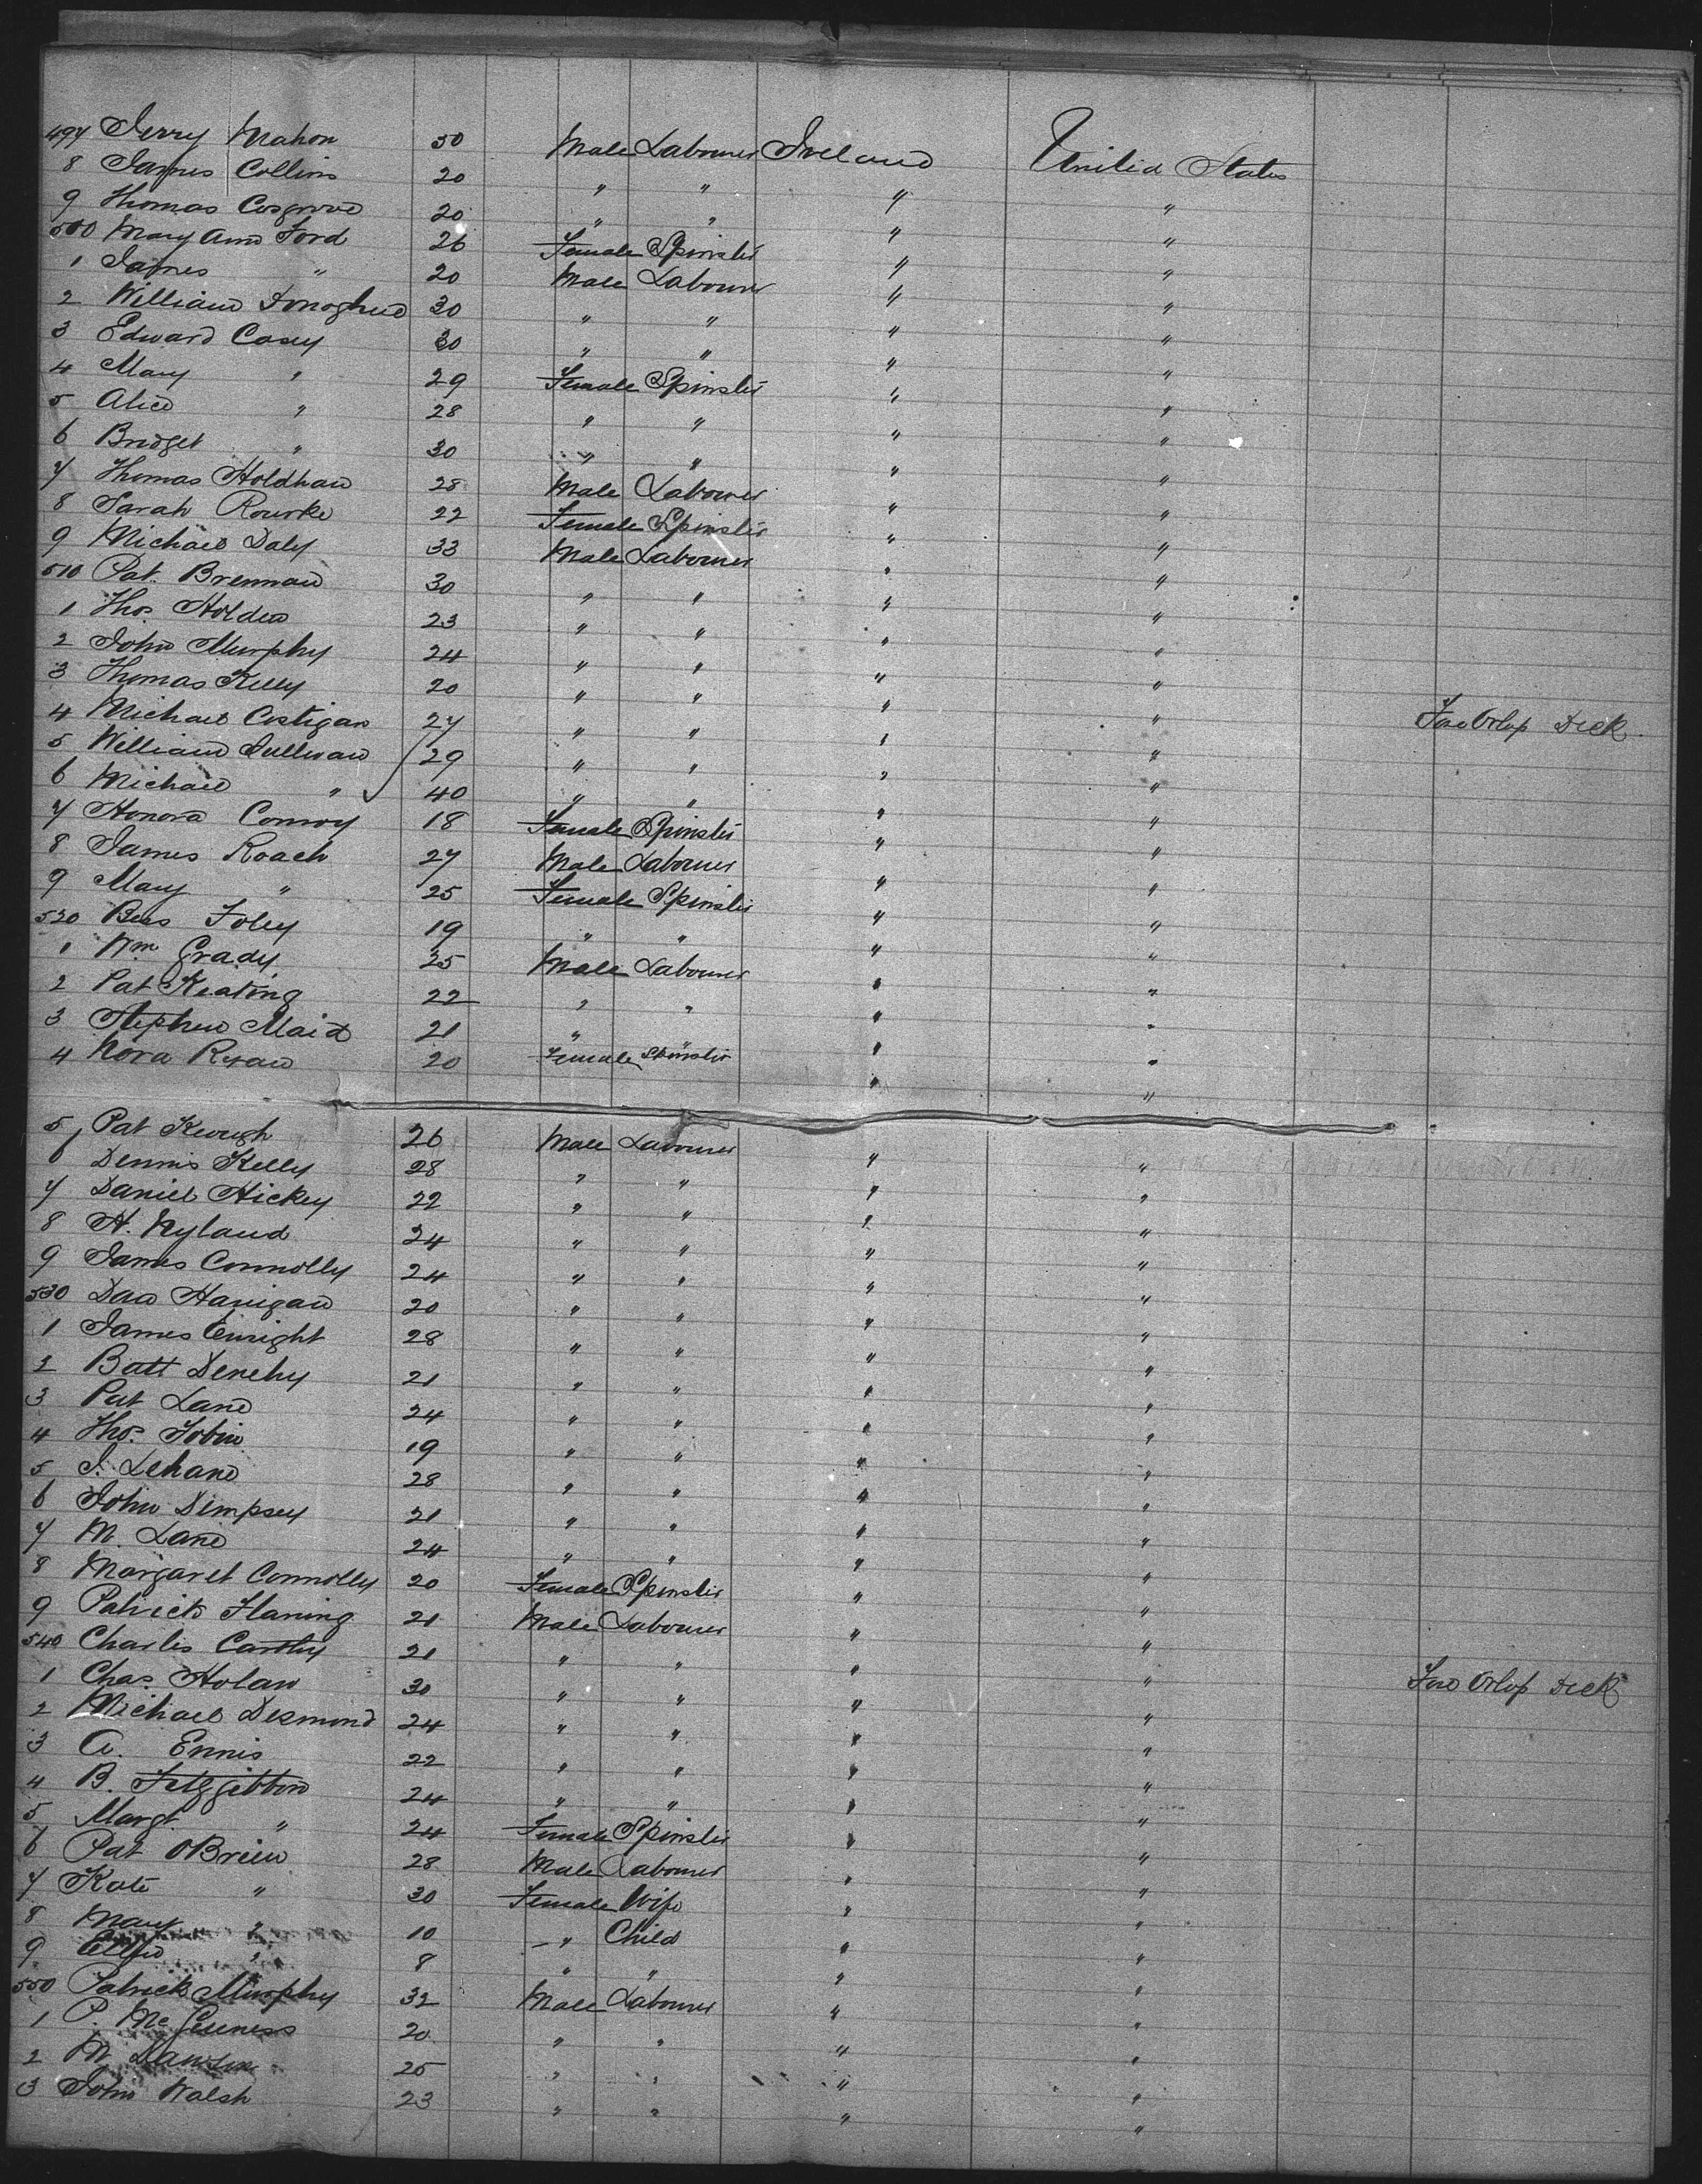 497 Jerry Mahon 50 Male Labourer Ireland United States
8 James Collins 20 " " " "
9 Thomas Cosgrove 20 " " " "
500 Mary Ann Ford 26 Female Spinster " "
1 James " 20 Male Labourer " "
2 William Donoghue 30 " " " "
3 Edward Casey 30 " " " "
4 Mary " 29 Female Spinster " "
5 Alice " 28 " " " "
6 Bridget " 30 " " " "
7 Thomas Holdhan 28 Male Labourer " "
8 Sarah Rourke 22 Female Spinster " "
9 Michael Daly 33 Male Labourer " "
510 Pat. Brennan 30 " " " "
1 Thos. Holden 23 " " " "
2 John Murphy 24 " " " "
3 Thomas Kelly 20 " " " "
4 Michael Costigan 27 " " " " Fore Orlop Deck
5 William Sullivan 29 " " " "
6 Michael " 40 " " " "
7 Honora Conroy 18 Female Spinster " "
8 James Roach 27 Male Labourer " "
9 Mary " 25 Female Spinster " "
520 Bess Foley 19 " " " "
1 Wm Grady 25 Male Labourer " "
2 Pat Keating 22 " " " "
3 Stephen Maid 21 " " " "
4 Nora Ryan 20 Female Spinster " "
5 Pat Keough 26 Male Labourer " "
6 Dennis Kelly 28 " " " "
7 Daniel Hickey 22 " " " "
8 H. Nyland 24 " " " "
9 James Connolly 24 " " " "
530 Dan Hanigan 20 " " " "
1 James Enright 28 " " " "
2 Batt Denehy 21 " " " "
3 Pat Lane 24 " " " "
4 Thos. Tobin 19 " " " "
5 J. Lehane 28 " " " "
6 John Dempsey 21 " " " "
7 M. Lane 24 " " " "
8 Margaret Connolly 20 Female Spinster " "
9 Patrick Flaning 21 Male Labourer " "
540 Charles Carthy 21 " " " "
1 Chas. Holan 30 " " " " Fore Orlop Deck
2 Michael Desmond 24 " " " "
3 A. Ennis 22 " " " "
4 B. Fitzgibbon 24 " " " "
5 Margt. " 24 Female Spinster " "
6 Pat OBrien 28 Male Labourer " "
7 Kate " 30 Female Wife " "
8 Mary " 10 " Child " "
9 Ellen " 8 " " " "
550 Patrick Murphy 32 Male Labourer " "
1 P. McGuiness 20 " " " "
2 M Dawson 25 " " " "
3 John Walsh 23 " " " "